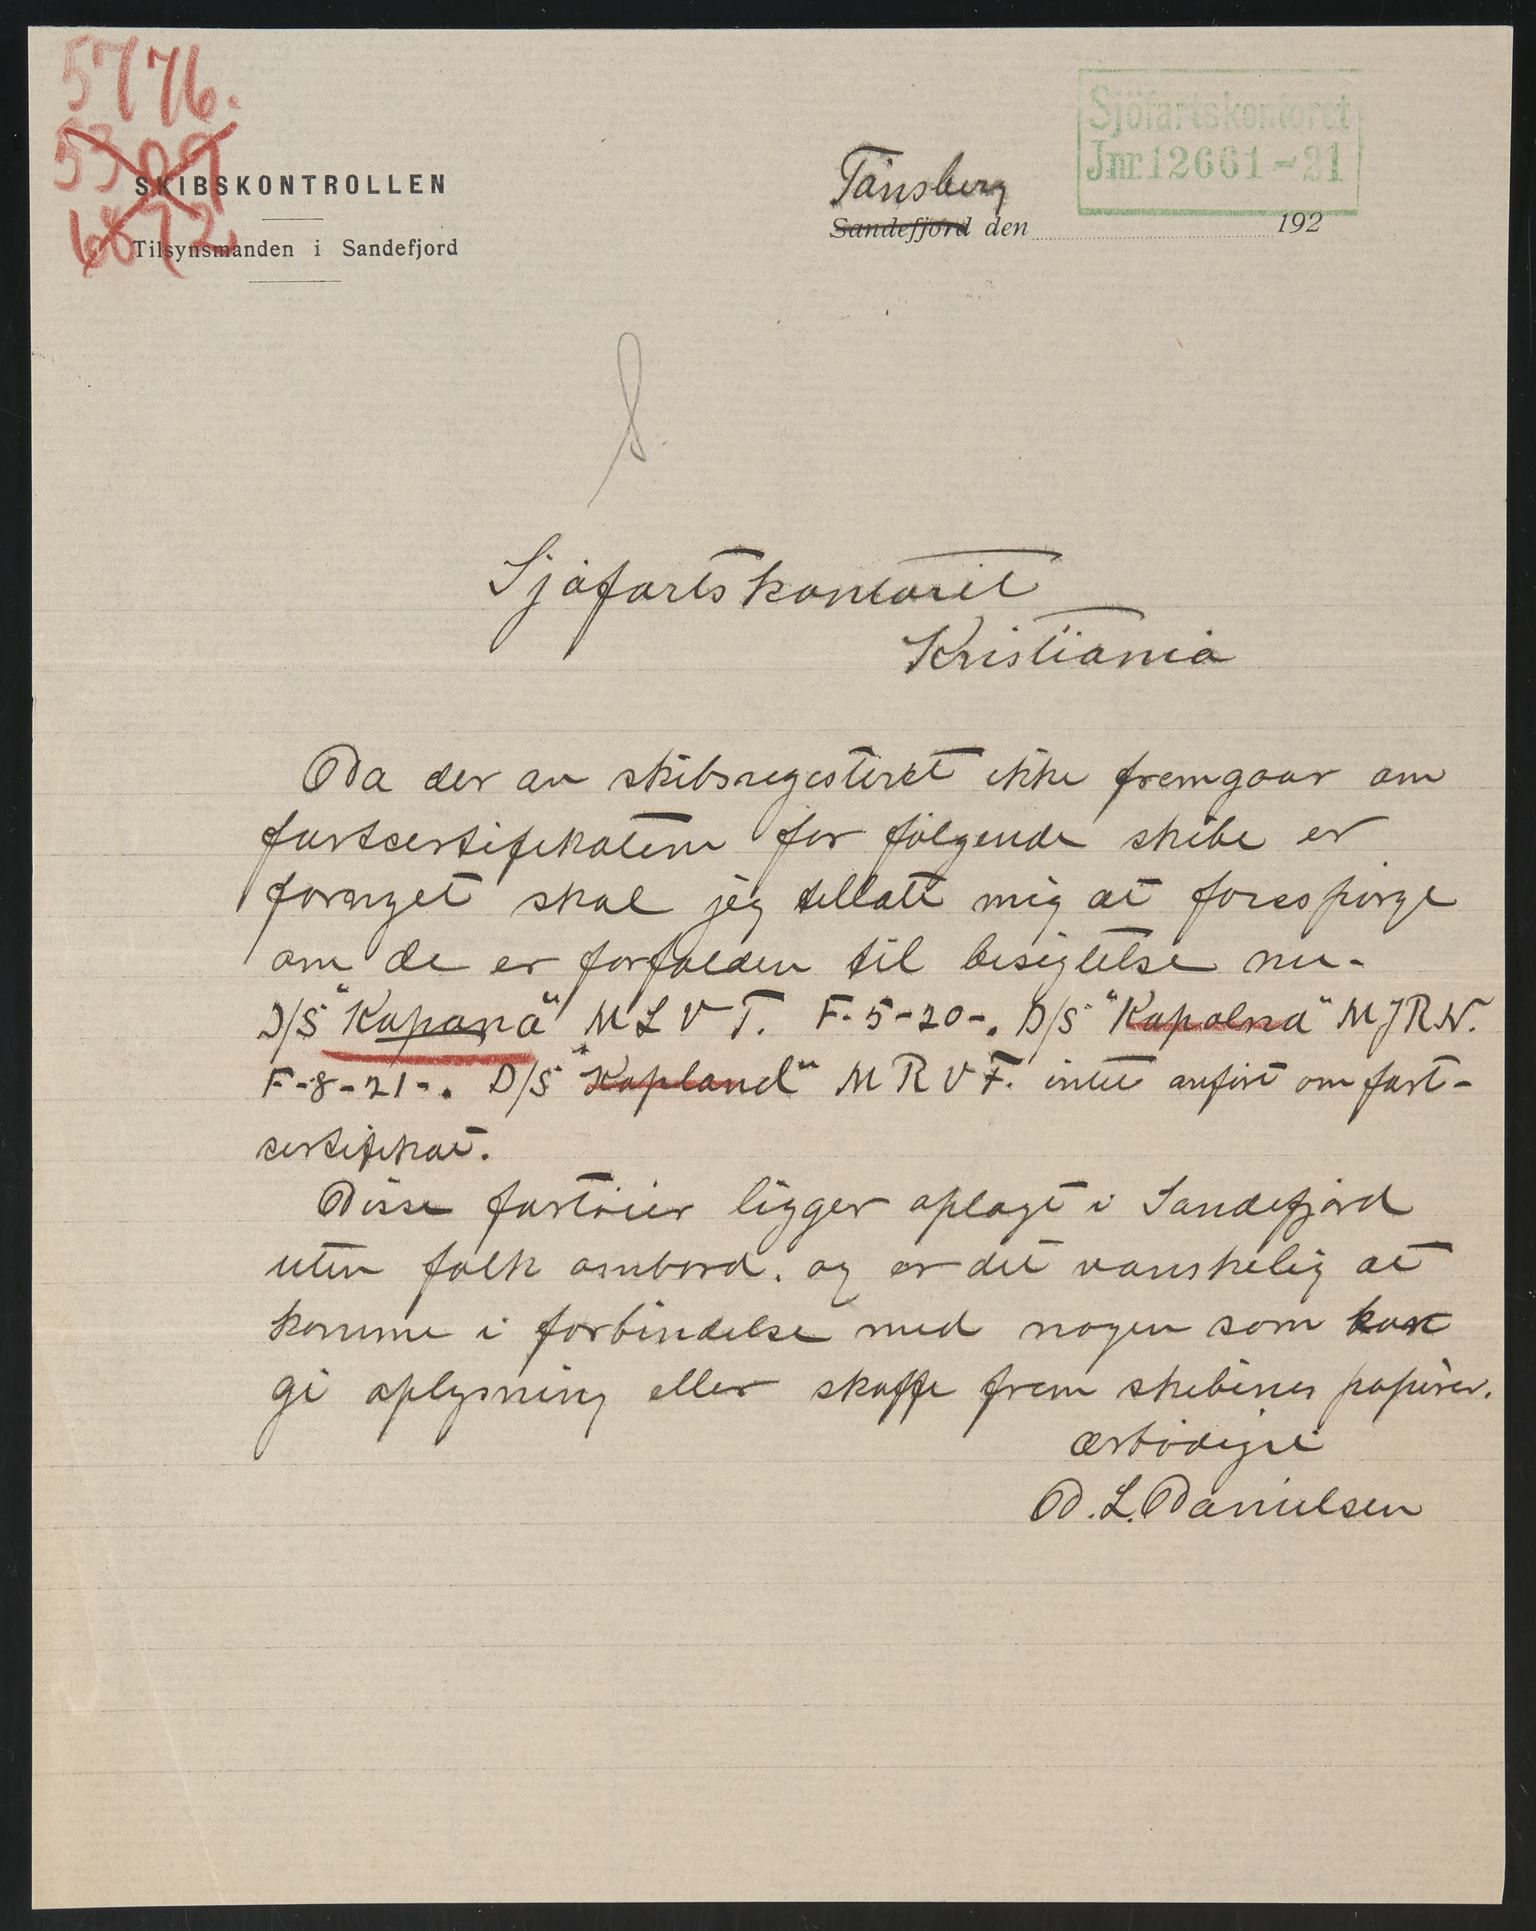 5776.
5309
6872
SKIBSKONTROLLEN
Tilsynsmanden i Sandefjord
Sjöfartskontoret
Jnr. 12661-21
Tønsberg
Sandefjord den 192
S.
Sjøfartskontoret
Kristiania
Da der av skibsregisteret ikke fremgaar om
fartsertifikatene for følgende skibe er
fornyet skal jeg tillate mig at forespørge
om de er forfalden til besigtelse nu.
D/S "Kapana" MLVT. F-5-20-. D/S "Kapolna" MJRN.
F-8-21-. D/S "Kapland" MRVF. intet anført om fart-
sertifikat.
Disse fartøier ligger oplagt i Sandefjord
uten folk ombord. og er det vanskelig at
komme i forbindelse med nogen som kan
gi oplysning eller skaffe frem skibenes papirer.
ærbødigst
D. L. Danielsen